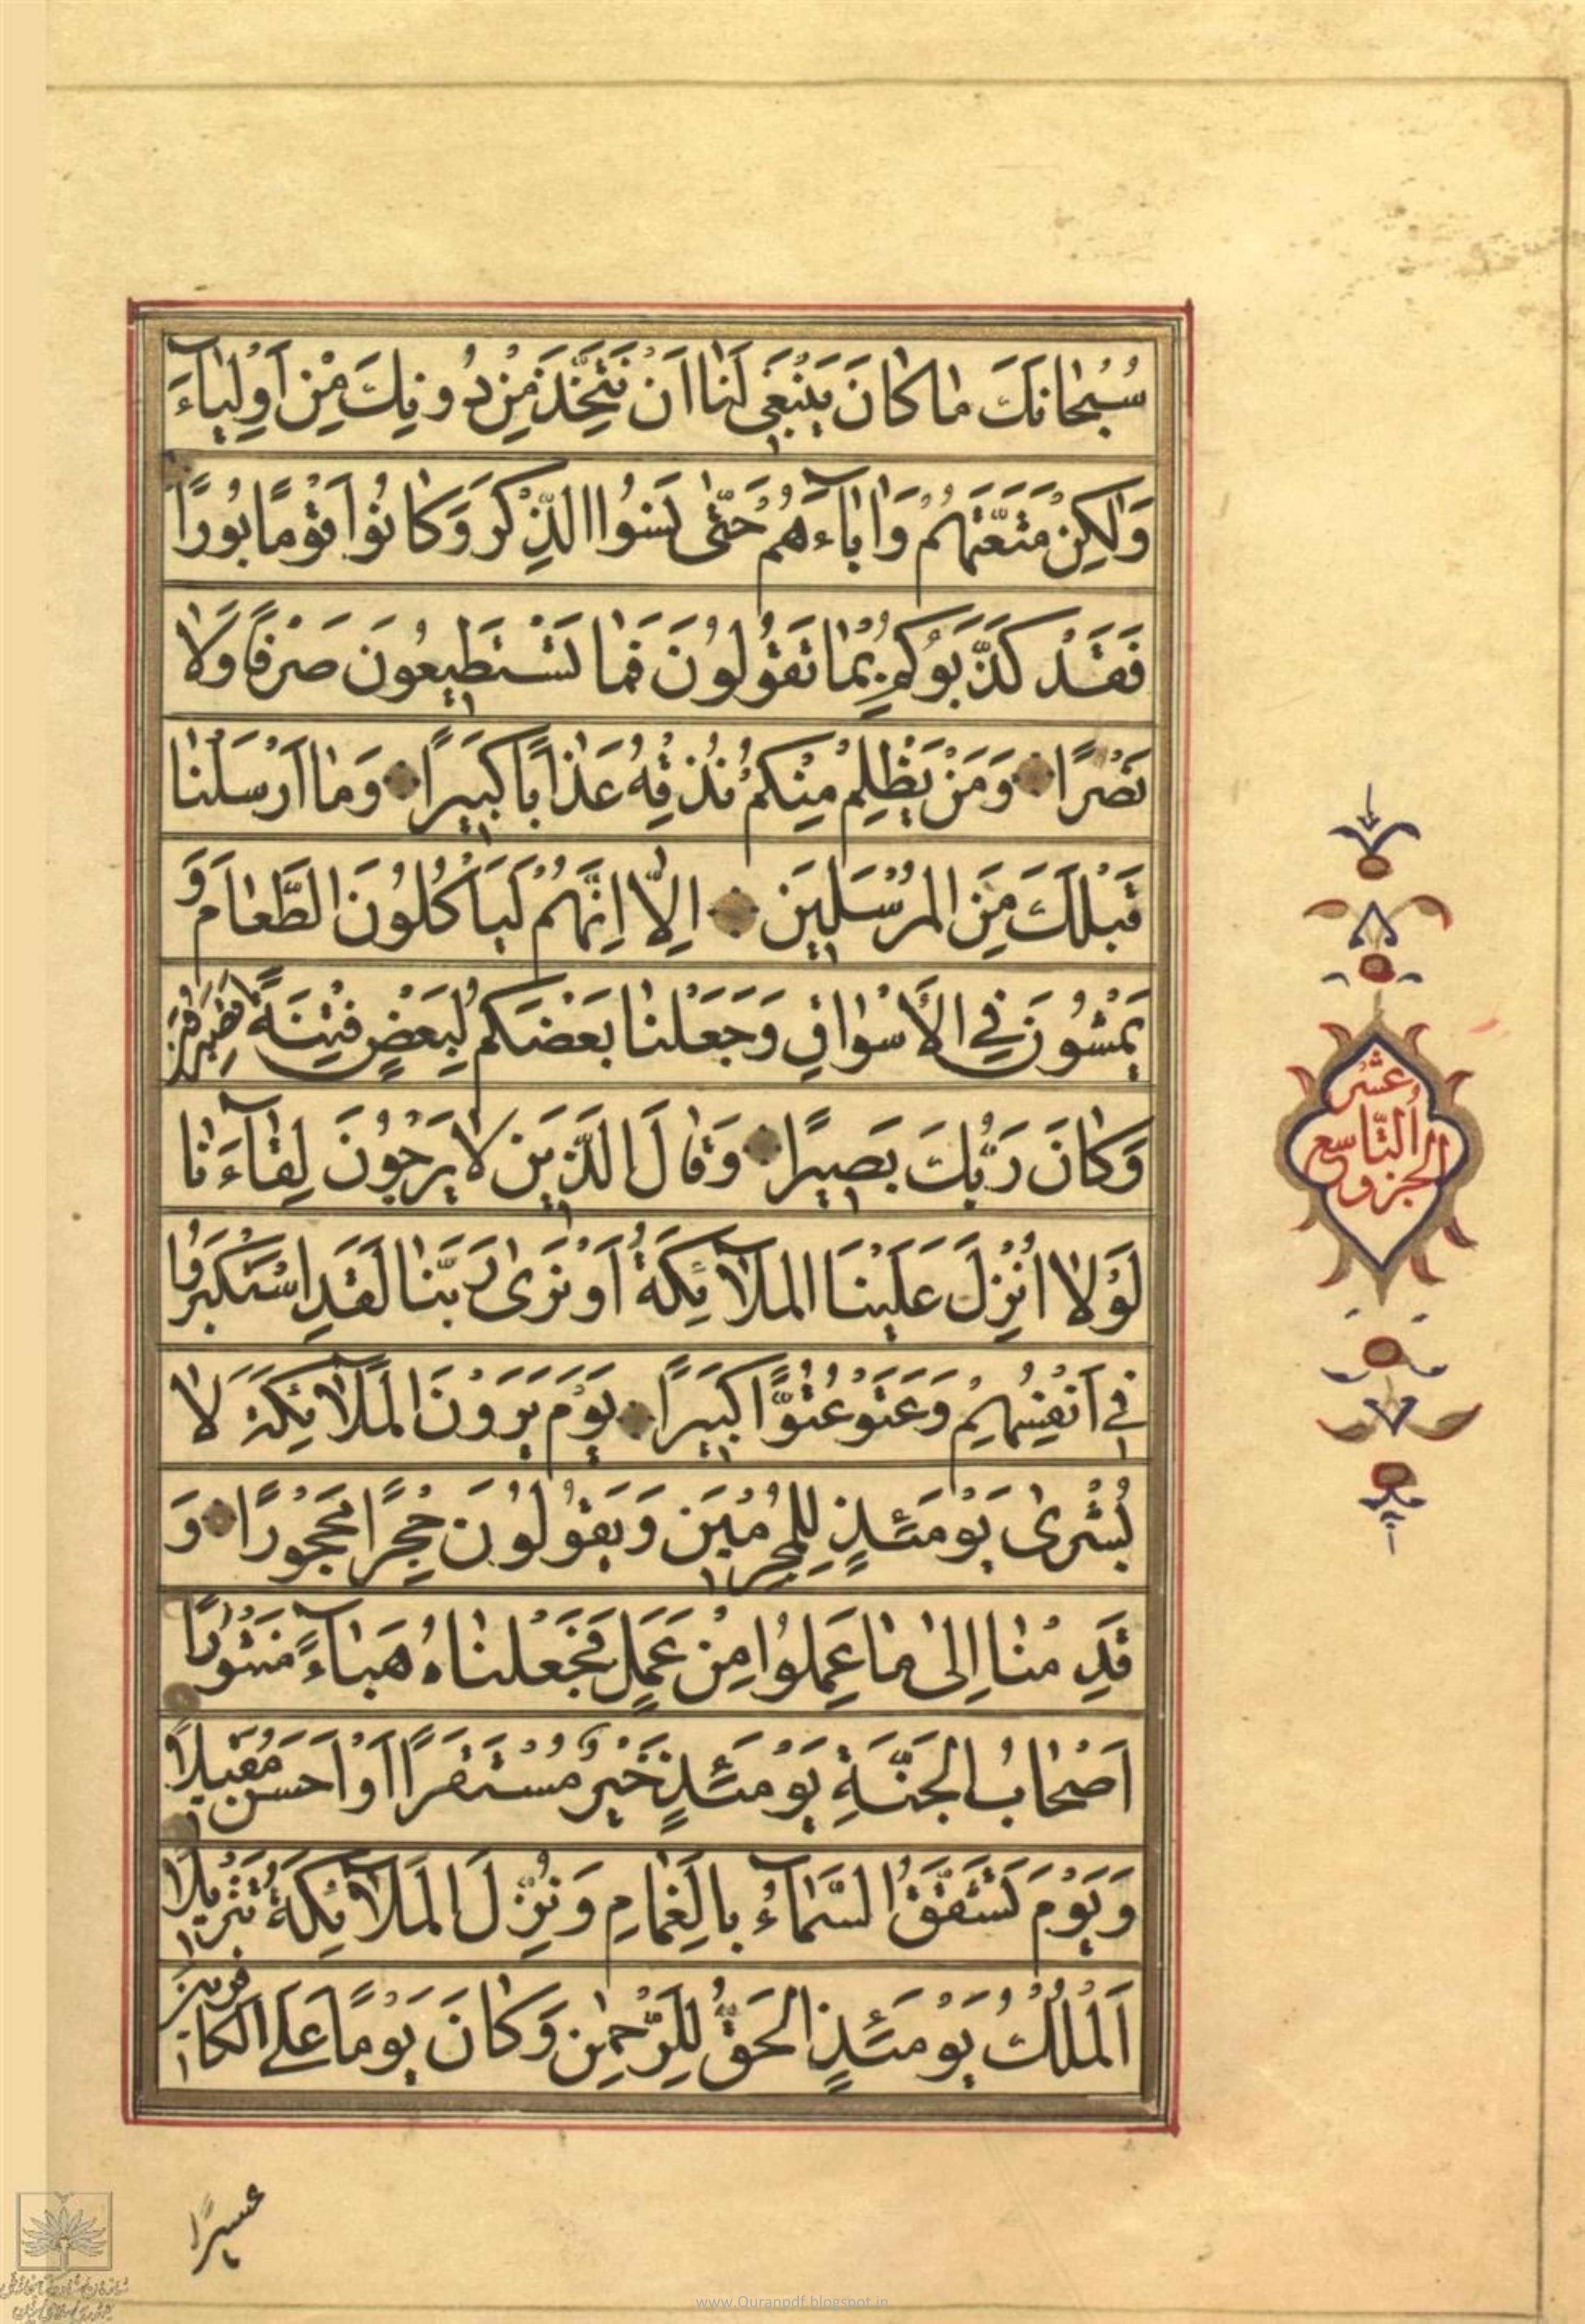 سُبْحانَكَ ما كانَ يَنْبَغي لَنا اَنْ نَتَّخِذَ مِنْ دُونِكَ مِنْ اَوْلِياءَ
وَلٰكِنْ مَتَّعْتَهُمْ وَاٰباءَهُمْ حَتّٰى نَسُوا الذِّكْرَ وَكانُوا قَوْمًا بُورًا
فَقَدْ كَذَّبُوكُمْ بِمٰا تَقُولُونَ فَمٰا تَسْتَطيعُونَ صَرْفًا وَلٰا
نَصْرًا وَمَنْ يَظْلِمْ مِنْكُمْ نُذِقْهُ عَذٰابًا كَبيرًا وَمٰا اَرْسَلْنٰا
قَبْلَكَ مِنَ المُرْسَلينَ اِلّٰا اِنَّهُمْ لَيَأكُلُونَ الطَّعٰامَ وَ
يَمْشُونَ فِي الْأَسْوٰاقِ وَجَعَلْنٰا بَعْضَكُمْ لِبَعْضٍ فِتْنَةً اَتَصْبِرُونَ
وَكٰانَ رَبُّكَ بَصيرًا وَقٰالَ الَّذينَ لٰا يَرْجُونَ لِقٰآءَنٰا
لَوْلٰا اُنْزِلَ عَلَيْنَا المَلٰآئِكَةُ اَوْ نَرٰى رَبَّنٰا لَقَدِ اسْتَكْبَرُوا
في اَنْفُسِهِمْ وَعَتَوْ عُتُوًّا كَبيرًا يَوْمَ يَرَوْنَ المَلٰآئِكَةَ لٰا
بُشْرٰى يَوْمَئِذٍ لِلْمُجْرِمينَ وَيَقُولُونَ حِجْرًا مَحْجُورًا وَ
قَدِمْنٰا اِلىٰ مٰا عَمِلُوا مِنْ عَمَلٍ فَجَعَلْنٰاهُ هَبٰآءً مَنْثُورًا
اَصْحٰابُ الجَنَّةِ يَوْمَئِذٍ خَيْرٌ مُسْتَقَرًّا اَوْ اَحْسَنُ مَقيلًا
وَيَوْمَ تَشَقَّقُ السَّمٰآءُ بِالْغَمٰامِ وَنُزِّلَ المَلٰآئِكَةُ تَنْزيلًا
اَلْمُلْكُ يَوْمَئِذٍ الحَقُّ لِلرَّحْمٰنِ وَكٰانَ يَوْمًا عَلَى الْكٰافِرينَ
عسيرًا
عشر
الجزو التّاسع
www.Quranpdf.blogspot.in